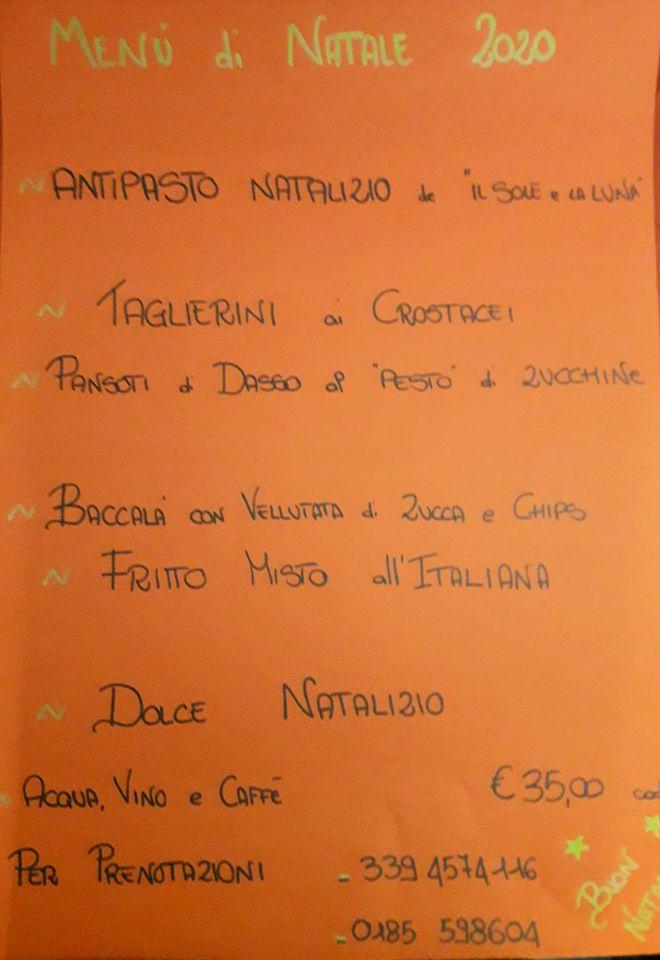 MENÚ di NATALE 2020
~ ANTIPASTO NATALIZIO de "IL SOLE e LA LUNA"
~ TAGLIERINI ai CROSTACEI
~ PANSOTI di DASSO al "PESTO" di ZUCCHINE
~ BACCALÀ CON VELLUTATA di ZUCCA e CHIPS
~ FRITTO MISTO all'ITALIANA
~ DOLCE NATALIZIO
- ACQUA, VINO e CAFFÉ €35,00
PER PRENOTAZIONI - 339 4574116
- 0185 598604
BUON